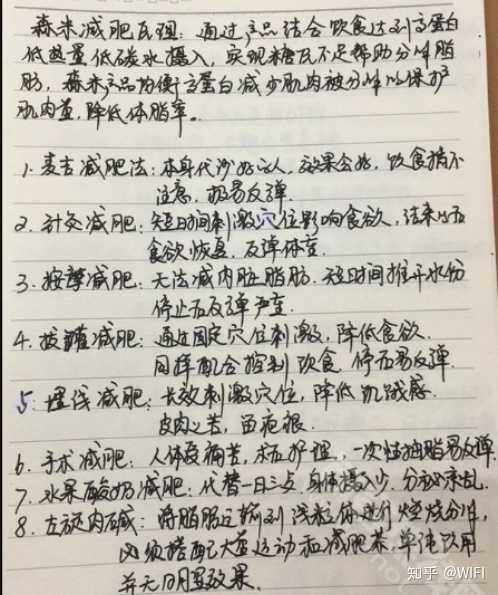 森米减肥原理：通过产品结合饮食达到高蛋白
低热量低碳水摄入，实现糖原不足帮助分解脂
肪，森米产品均衡高蛋白减少肌肉被分解以保护
肌肉量，降低体脂率。
1. 麦吉减肥法：本身代谢好的人，效果会好，饮食稍不
注意，极易反弹.
2. 针灸减肥：短时间刺激穴位影响食欲，结束以后
食欲恢复，反弹体重.
3. 按摩减肥：无法减内脏脂肪. 短时间推开水份
停止后反弹严重.
4. 拔罐减肥：通过固定穴位刺激，降低食欲.
同样配合控制饮食 停后易反弹.
5. 埋线减肥：长效刺激穴位，降低饥饿感.
皮肉之苦，留疤痕.
6. 手术减肥：人体受痛苦，术后护理，一次性抽脂易反弹.
7. 水果酸奶减肥：代替一日三点，身体摄入少，分泌紊乱.
8. 左旋肉碱：将脂肪运输到线粒体进行燃烧分解,
必须搭配大量运动和减肥茶，单纯饮用
并无明显效果.
知乎 @WIFI